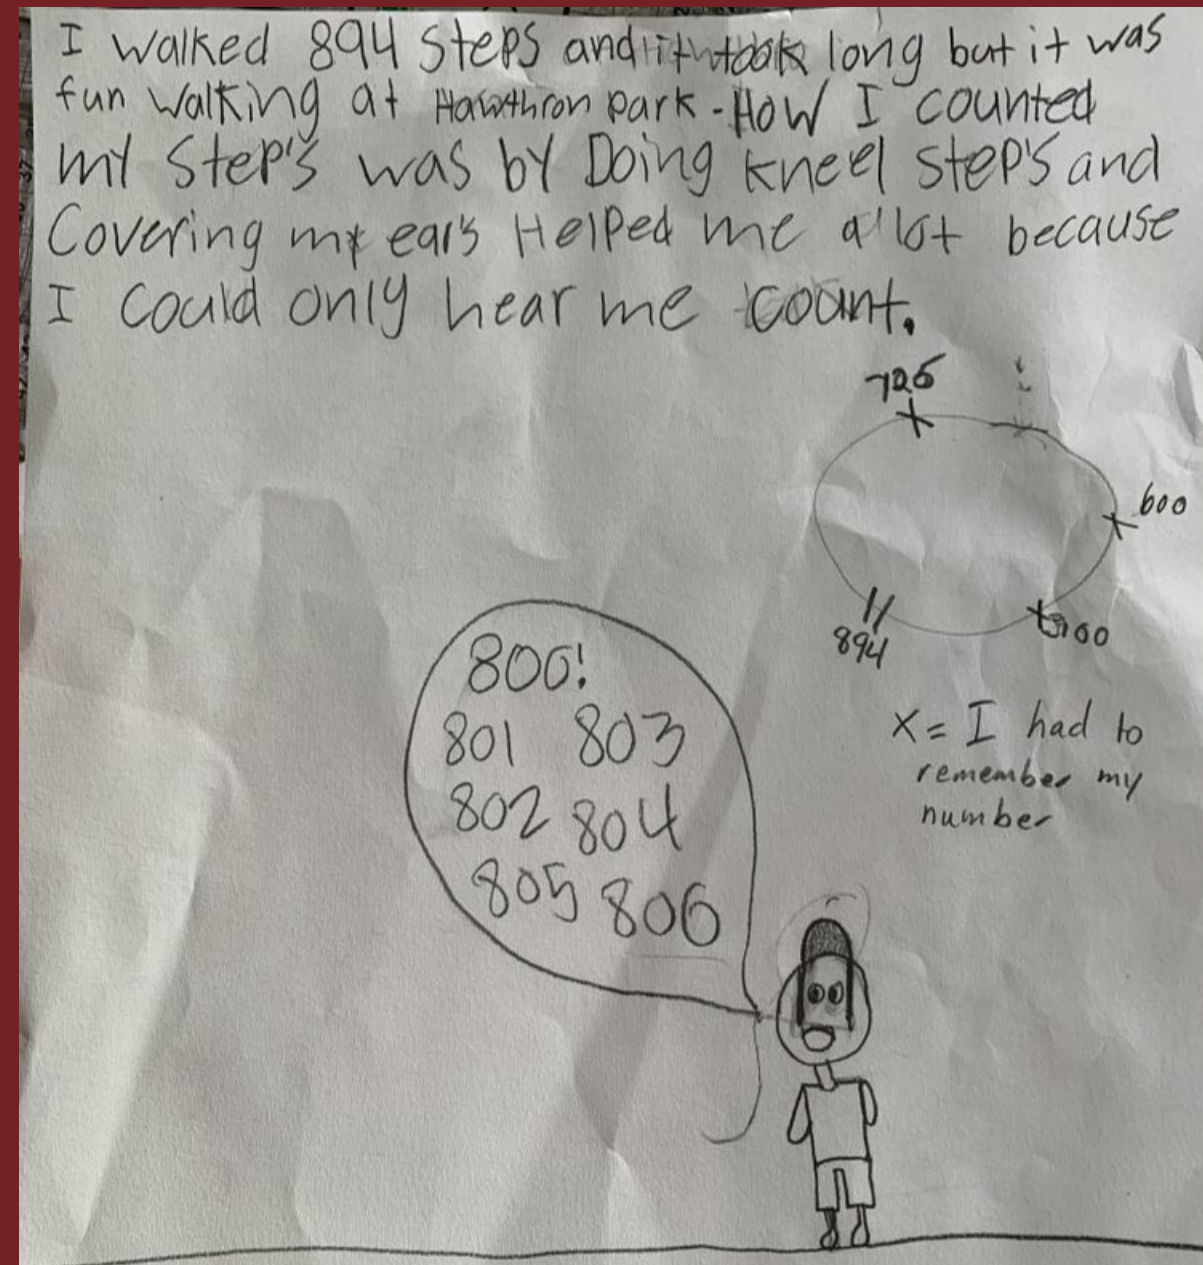 I walked 894 Steps and it took long but it was
fun walking at Hawthron park - How I counted
my Step's was by Doing kneel step's and
Covering my ear's Helped me a'lot because
I could only hear me count.
726
600
894
X = I had to
remember my
number
800!
801 803
802 804
805 806